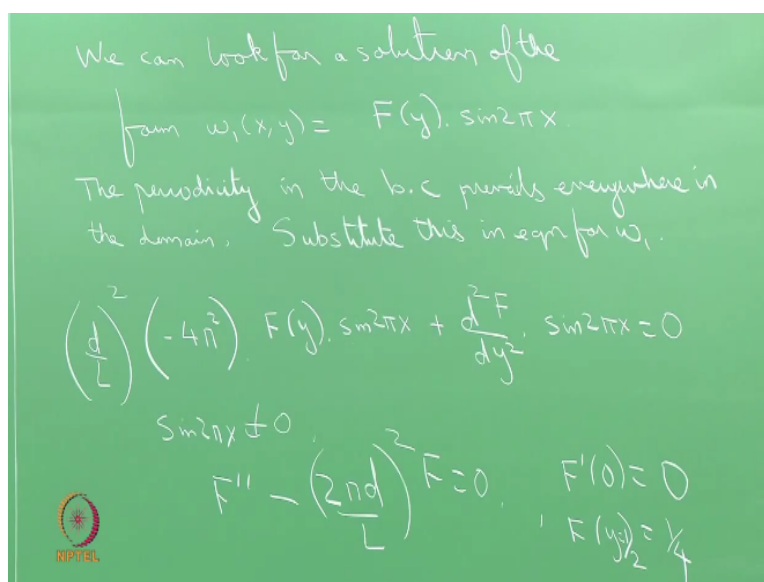 We can look for a solution of the
form w₁(x,y) = F(y). sin2πx.
The periodicity in the b.c prevails everywhere in
the domain. Substitute this in eqn for w₁.
(d/L)² (-4π²) F(y). sin2πx + d²F/dy². sin2πx = 0
sin2πx ≠ 0.
F'' - (2πd/L)² F = 0, F'(0) = 0
, F(y=1/2) = 1/4
NPTEL